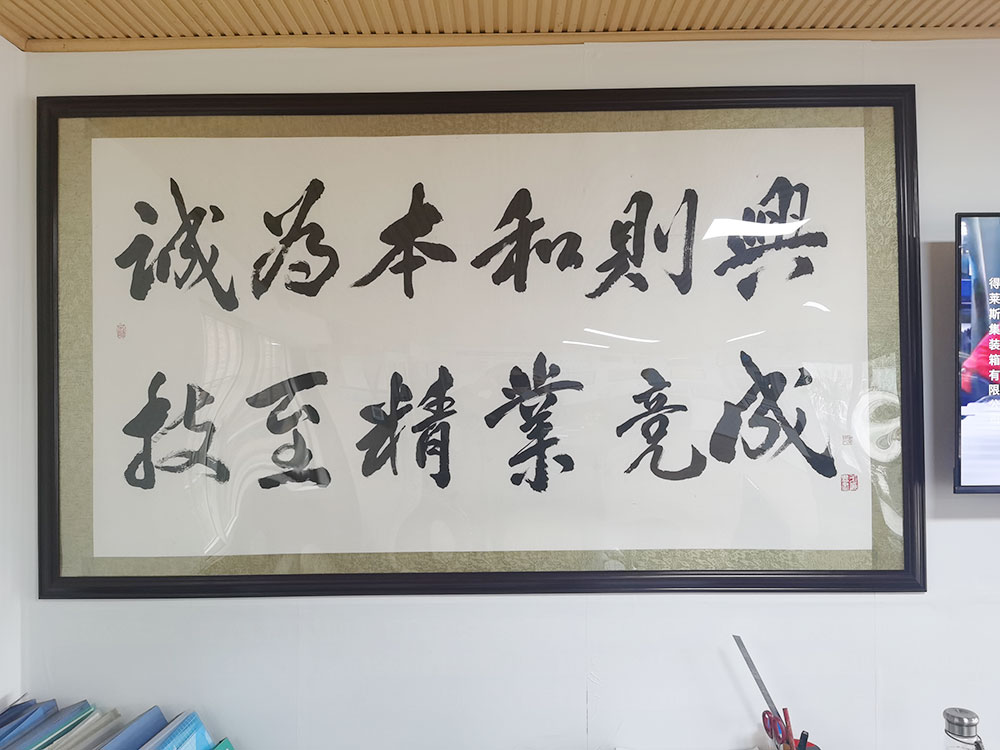 誠為本和則興
技至精業竞成
得莱斯集装箱有限